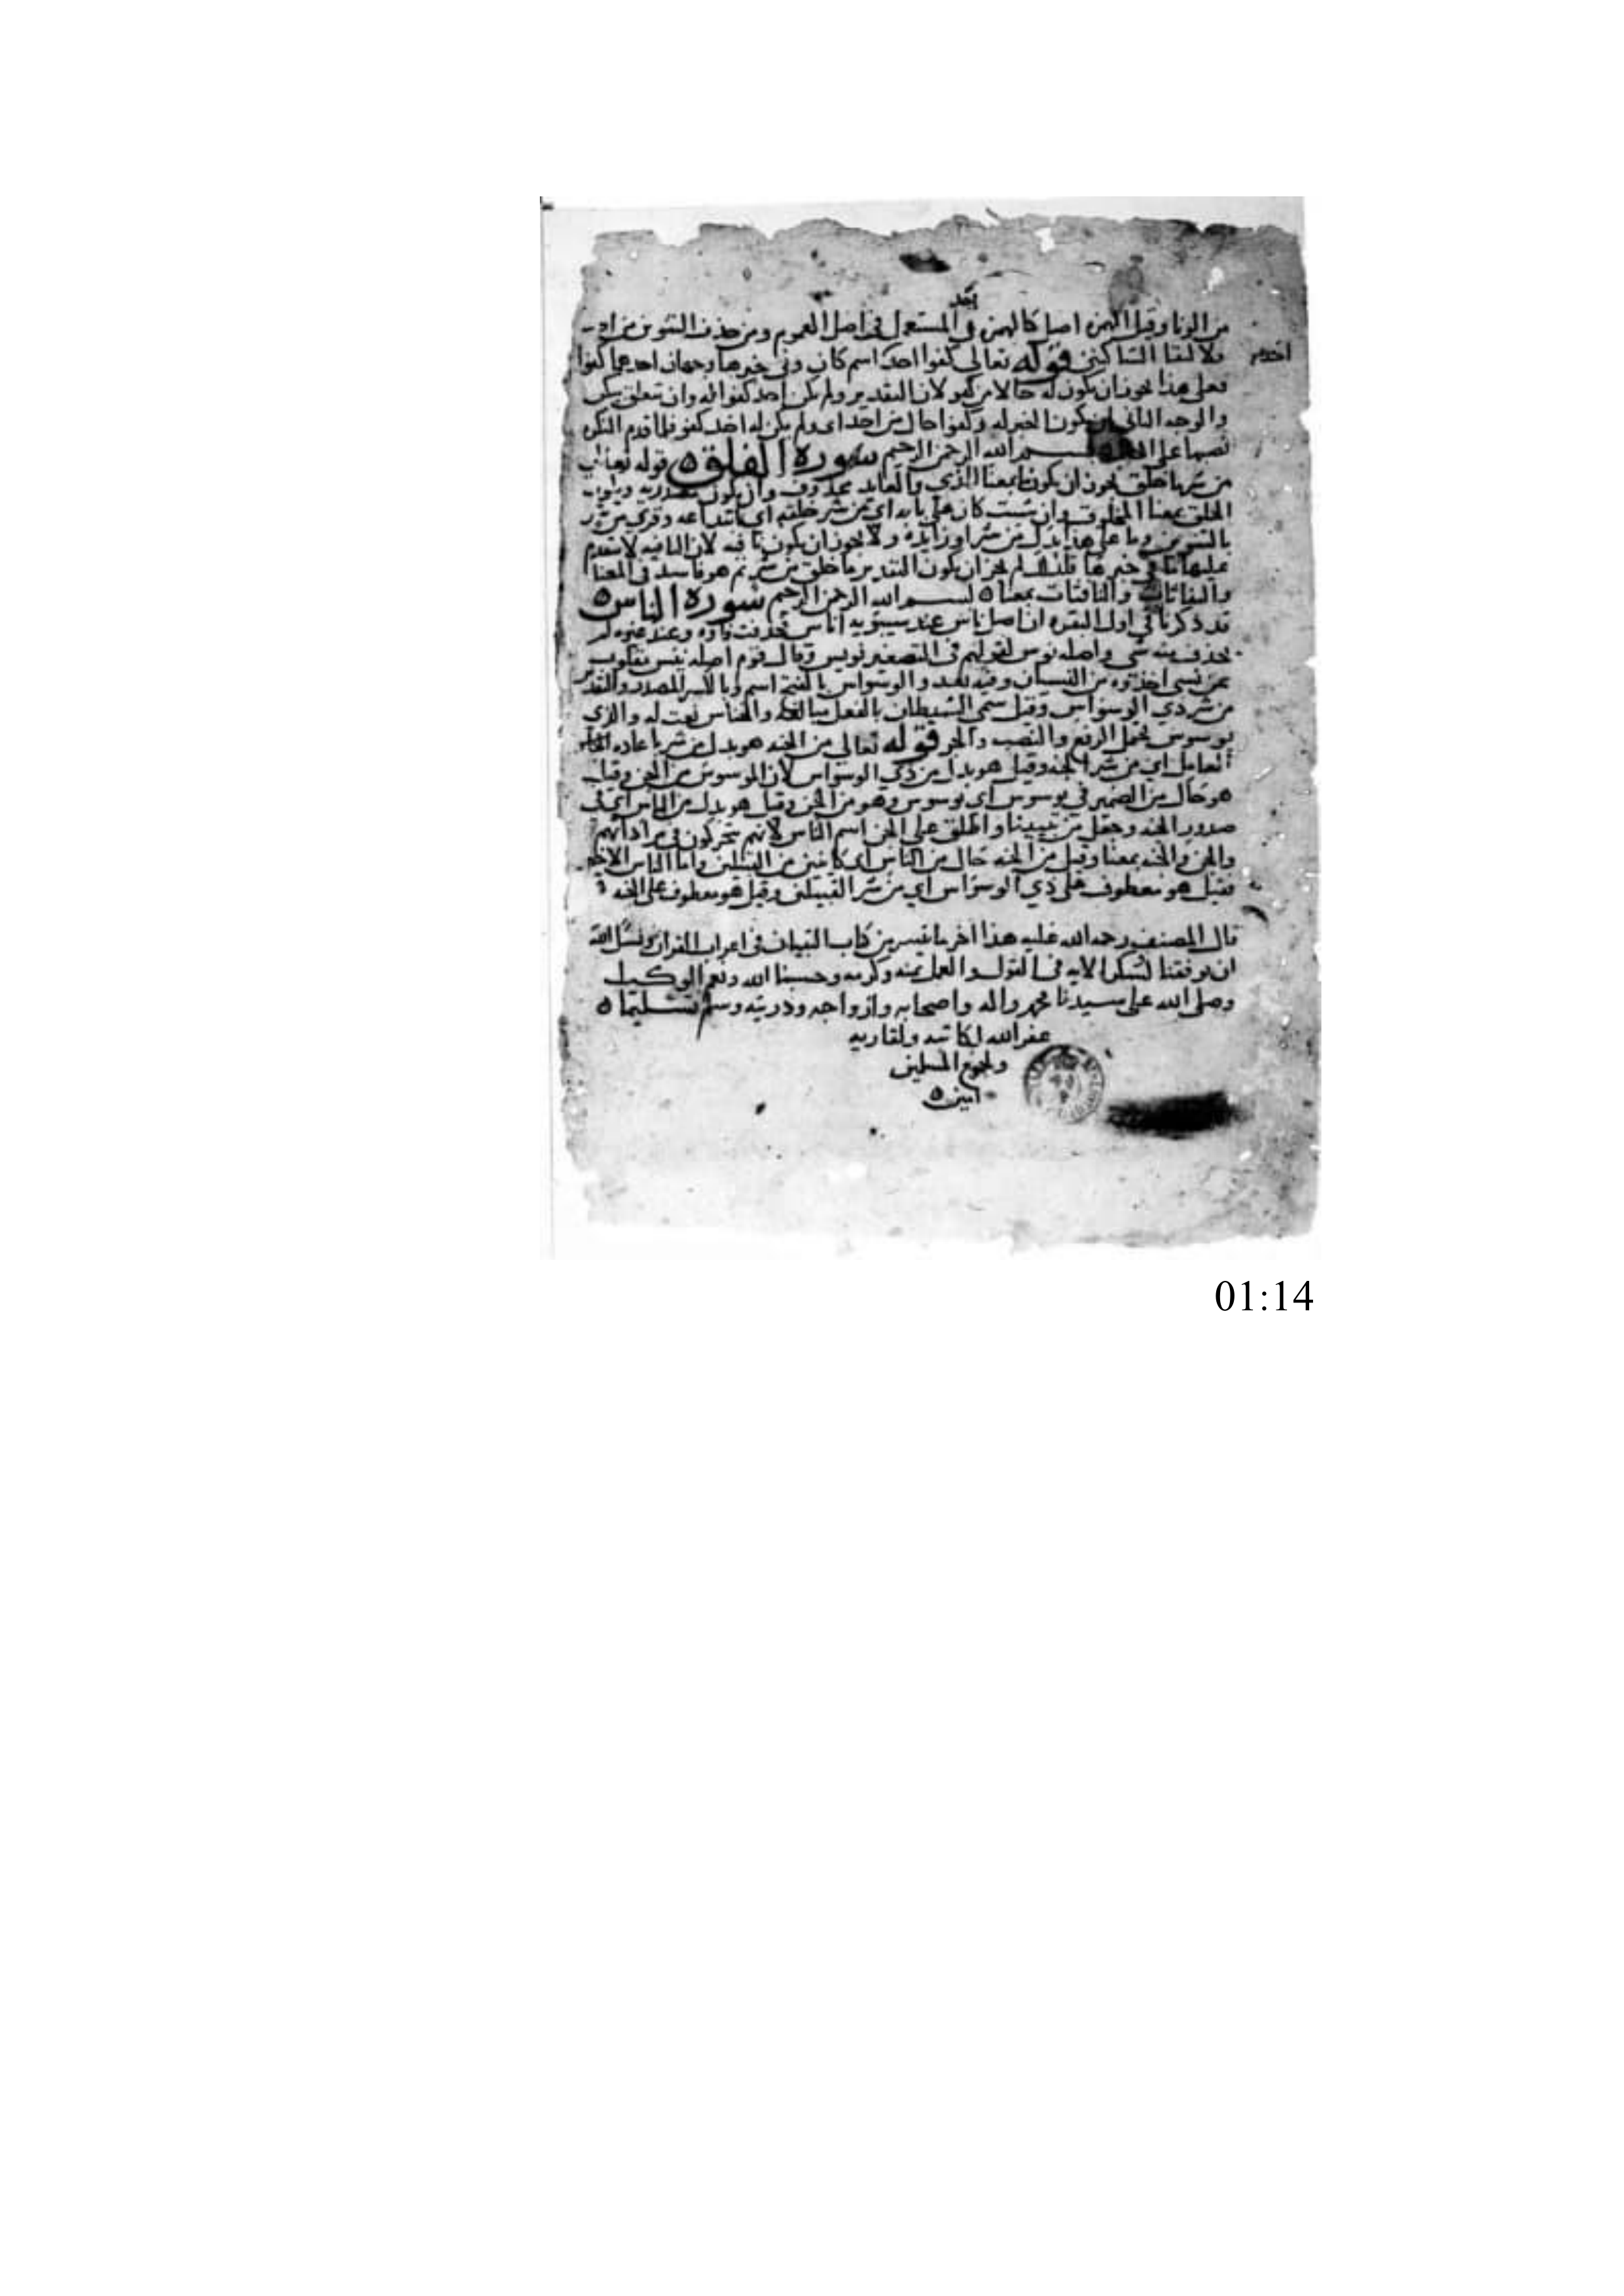 احد
من الونا وقيل الهمزه اصل كالهمزه في المستعمل في اصل العموم ومن حذف التنوين من احد
احدهم
فلالتقا الساكنين قوله تعالى كفوا احد اسم كان وفي خبرها وجهان احدهما كفوا
فعلى هذا يجوز ان يكون له حالا من كفو لان التقدير ولم يكن احد كفوا له وان يتعلق بيكن
والوجه الثاني ان يكون الخبر له وكفوا حال من احد اي ولم يكن له احد كفو فلما قدم النكره
نصبها على بسم الله الرحمن الرحيم سوره الفلق ه قوله تعالى
من شر ما خلق يجوز ان يكون ما بمعنا الذي والعايد محذوف وان يكون مصدريه ويكون
الخلق بمعنا المخلوق وان شئت كان على بابه اي من شر خلقه اي ابتداعه وقري من شر
بالتنوين وما على هذا بدل من شر او زايده ولا يجوز ان يكون نافيه لان النافيه لا يتقدم
عليها ما في خبرها فلذلك لم يجز ان يكون التقدير ما خلق من شر ثم هو فاسد في المعنا
والنفاثات والنافثات بمعنا ه بسم الله الرحمن الرحيم سوره الناس ه
قد ذكرنا في اول البقره ان اصل ناس عند سيبويه اناس فحذفت فاوه وعند غيره لم
يحذف منه شي واصله نوس لقولهم في التصغير نويس وقال قوم اصله نيس مقلوب
عن نسي اخذوه من النسيان وفيه بعد والوسواس بالفتح اسم وبالكسر المصدر والتقدير
من شر ذي الوسواس وقيل سمي الشيطان بالفعل مبالغه والخناس نعت له والذي
يوسوس يحتمل الرفع والنصب والجر قوله تعالى من الجنه هو بدل من شر باعاده
العامل اي من شر الجنه وقيل هو بدل من ذي الوسواس لان الموسوس من الجن وقيل
هو حال من الضمير في يوسوس اي يوسوس وهو من الجن وقيل هو بدل من الناس اي في
صدور الجنه وجعل من تبيينا واطلق على الجن اسم الناس لانهم يتحركون في مراداتهم
والجن والجنه بمعنا وقيل من الجنه حال من الناس اي كاينين من القبيلين واما الناس الاخير
فقيل هو معطوف على ذي الوسواس اي من شر القبيلين وقيل هو معطوف على الجنه
قال المصنف رحمه الله عليه هذا اخر ما تيسر من كتاب التبيان في اعراب القران ونسئل الله
ان يوفقنا لشكر الايه في القول والعمل بمنه وكرمه وحسبنا الله ونعم الوكيل
وصلى الله على سيدنا محمد واله واصحابه وازواجه وذريته وسلم تسليما ه
غفر الله لكاتبه ولقاريه
ولجميع المسلمين
امين ه
01:14